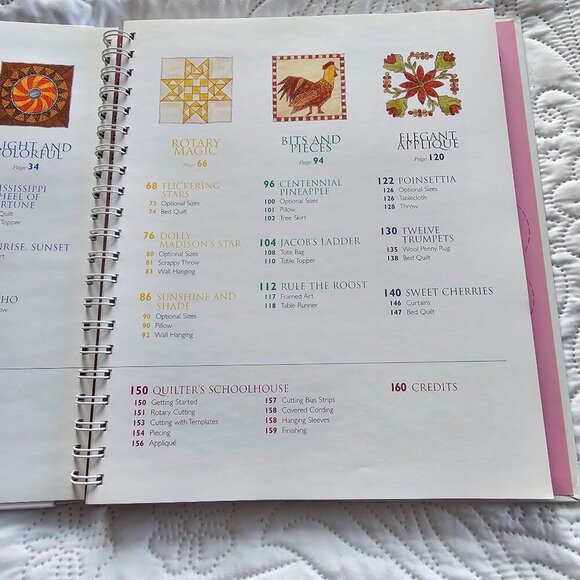 IGHT AND
OLORFUL
Page 34
ISSISSIPPI
HEEL OF
ORTUNE
Quilt
RISE, SUNSET
HO
ROTARY
MAGIC
Page 66
68 FLICKERING
STARS
73 Optional Sizes
74 Bed Quilt
76 DOLLY
MADISON'S STAR
80 Optional Sizes
81 Scrappy Throw
83 Wall Hanging
86 SUNSHINE AND
SHADE
90 Optional Sizes
90 Pillow
92 Wall Hanging
BITS AND
PIECES
Page 94
96 CENTENNIAL
PINEAPPLE
100 Optional Sizes
101 Pillow
102 Tree Skirt
104 JACOB'S LADDER
108 Tote Bag
110 Table Topper
112 RULE THE ROOST
117 Framed Art
118 Table Runner
ELEGANT
APPLIQUÉ
Page 120
122 POINSETTIA
126 Optional Sizes
126 Tablecloth
128 Throw
130 TWELVE
TRUMPETS
135 Wool Penny Rug
138 Bed Quilt
140 SWEET CHERRIES
146 Curtains
147 Bed Quilt
150 QUILTER'S SCHOOLHOUSE
150 Getting Started
151 Rotary Cutting
153 Cutting with Templates
154 Piecing
156 Appliqué
157 Cutting Bias Strips
158 Covered Cording
158 Hanging Sleeves
159 Finishing
160 CREDITS